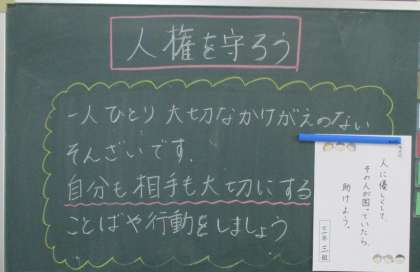 人権を守ろう
一人ひとり大切なかけがえのない
そんざいです.
自分も相手も大切にする
ことばや行動をしましょう
人に優しくして、
その人が困っていたら、
助けよう。